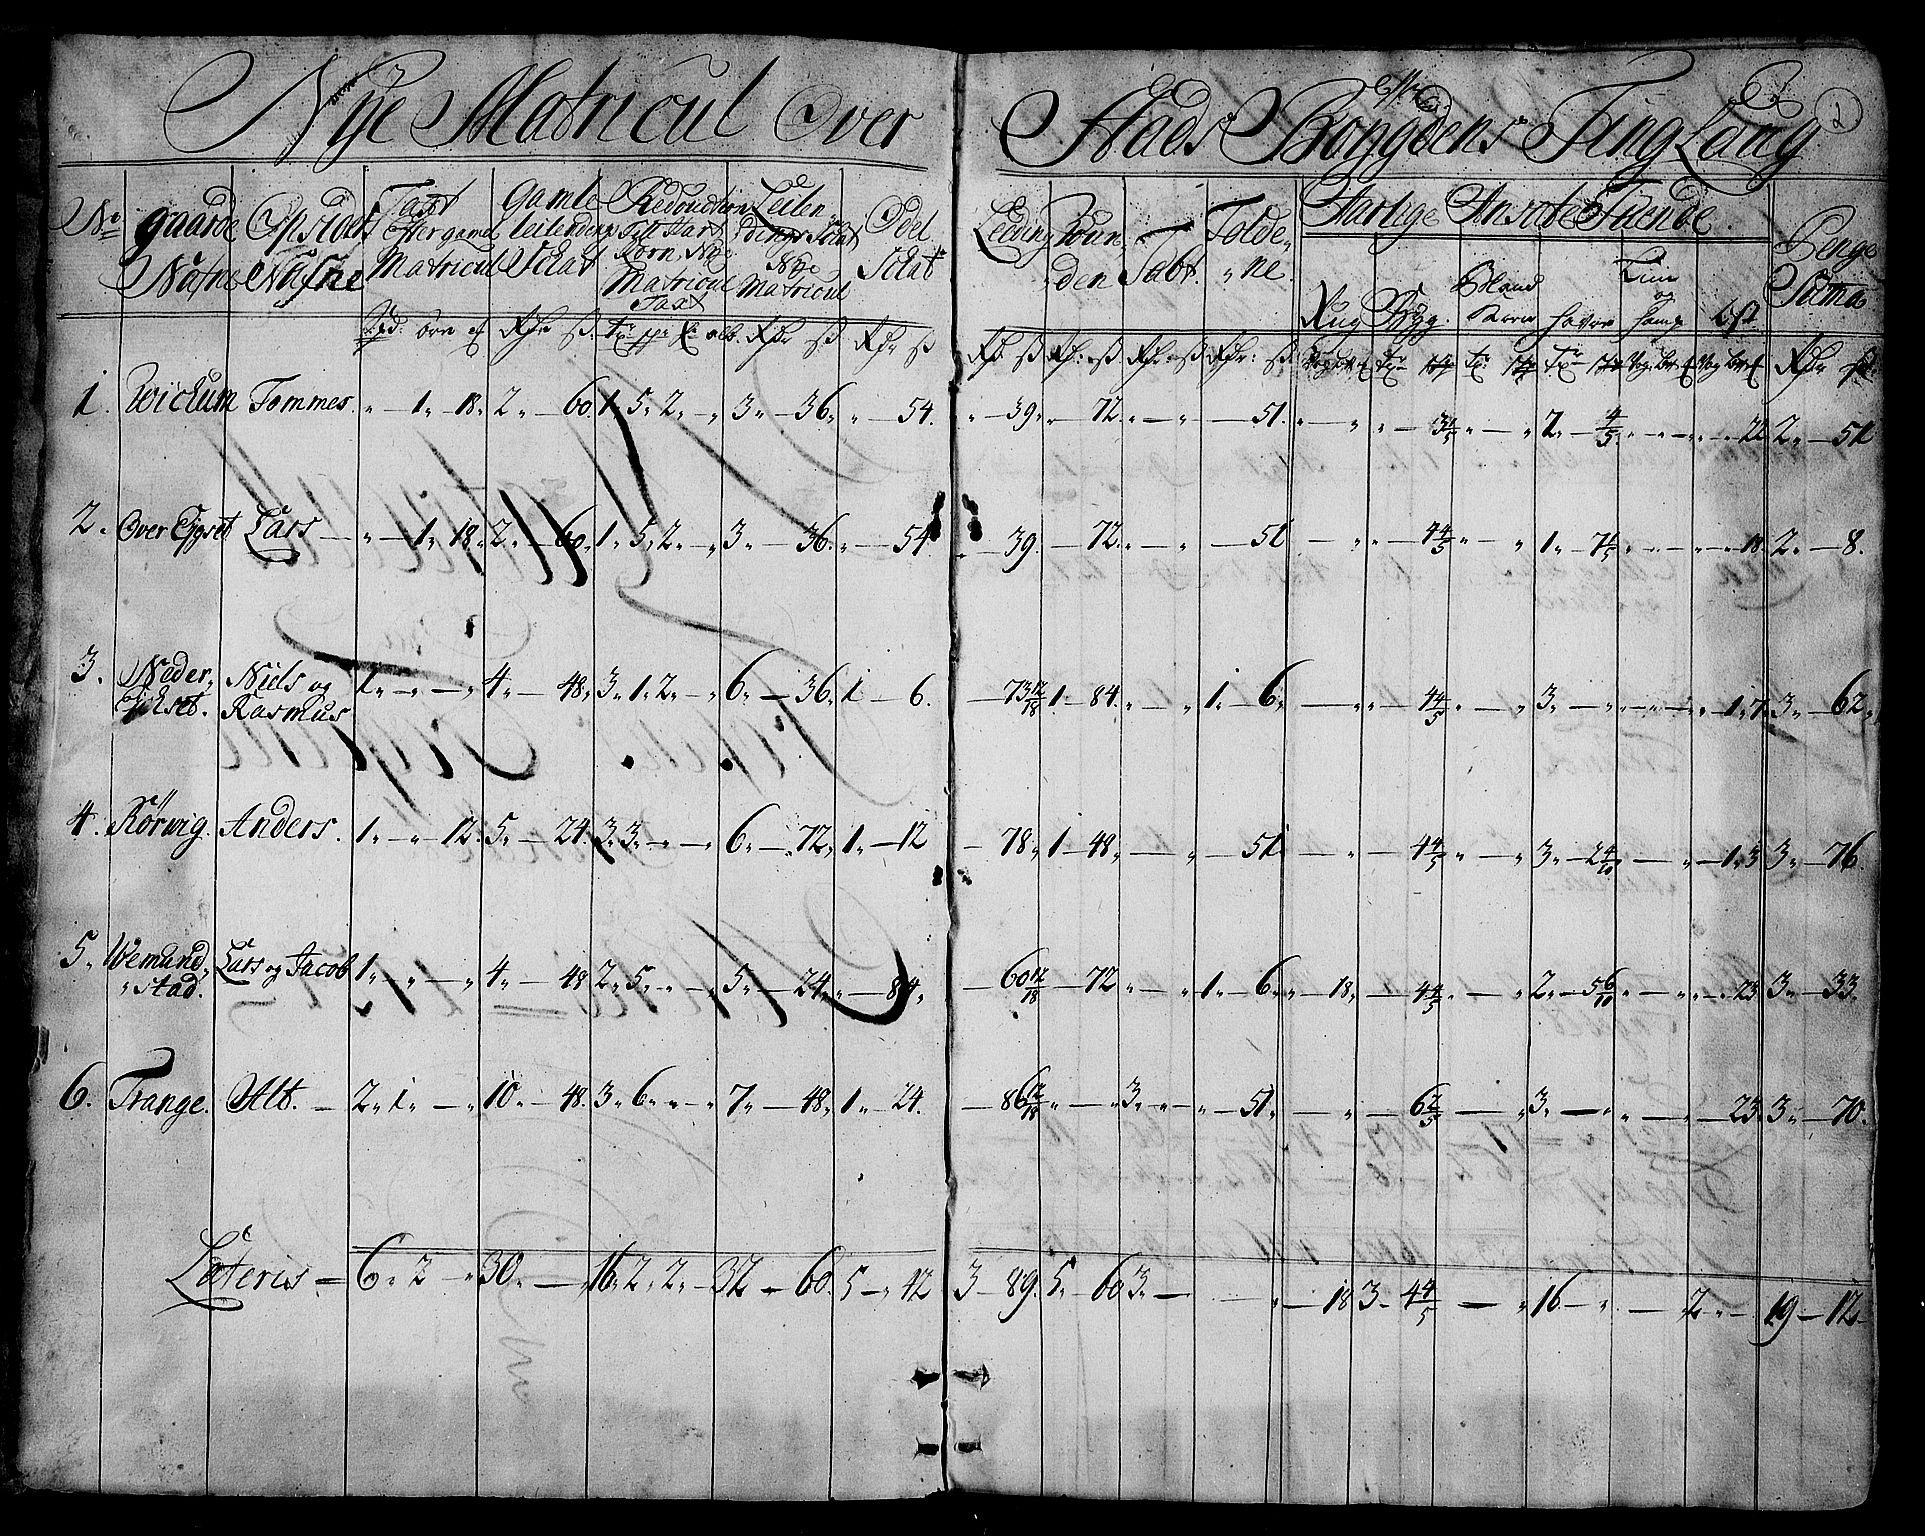 Nÿe Matricul Over Stads Boÿgdens Ting Laug 2
No gaarde Nafne Opsid Nafne Taxt Efter gamel Matricul Gamle Leilendings Schat Redouction Till Hart Korn Nÿe Matricul Taxt Leilendings Schat Nÿe Matricul Odel Schat Leding Tabt. Aarlige Ansatte Tiende Penge Suma
Rug Bÿg. Bland Korn hafre Liin og hamp ost
1. Wickum Tommes. „ — 1„ 18„ 2„ — 60. 1„ 5„ 2„ „ 3„ — 36„ „ — 54. „ — 39„ „ — 72. „ — „ — 51. „ — „ „ — 3 1/5 „ — „ 2„ — 4/5 „ — „ — „ 22 2„ — 51
2. Over Eygset Lars — „ — 1„ 18„ 2„ — 60„ 1„ 5„ 2„ — „ 3„ — 36„ „ — 54. „ — 39. — 72. „ — „ — 51 — „ „ — 4 4/5 „ — „ 1„ — 7 1/5 „ — „ — „ 18. 2„ — 8.
3. Neder„ Eikset. Niels og Rasmus 1„ — „ — „ 4„ — 48„ 3„ 1„ 2„ — „ 6„ — 36„ 1 — 6. — 73 12/18 1 — 84. „ — „ 1„ — 6„ — „ „ — 4 4/5 „ — „ 3„ — „ — „ — „ — 1„ 7„ 3„ — 62„
4. Rörwig. Anders. 1„ — „ 12„ 5„ — 24. 3„ 3„ — „ — „ 6„ — 72„ 1„ — 12 — 78„ 1 — 48„ — „ — 51 — „ — 4 4/5 „ — „ 3„ — 2 4/10 „ — „ — 1„ 3 3„ — 76.
5„ Wemund„ „stad. Lars og Jacob 1„ — „ — „ 4„ — 48 2„ 5„ — „ — „ 5„ — 24„ „ — 84„ — 60 12/18 — 72 „ — „ 1„ — 6„ „ — 18„ — 4 4/5 „ — „ 2„ — 5 6/10 „ — „ — 23 3„ — 33„
6. Trange. Alt. — 2„ 1„ — „ 10„ — 48. 3„ 6„ — „ — „ 7„ — 48„ 1„ — 24. — 86 12/18 „ — „ 3„ — „ — 51„ — „ — 6 2/5 — „ 3„ — „ — „ — 23. 3„ — 70.
Lateris — 6„ 2 — „ 30„ — „ 16„ 2„ 2„ — 32 — 60. 5 — „ 42 3 — 89. 5„ — 60 3„ — „ — 18 3 — 4 4/5 — „ 16 — „ — 2 „ — 19 — 12